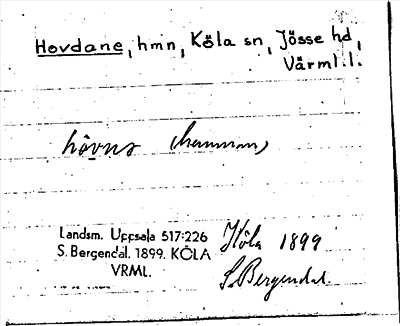 Hovdane, hmn, Köla sn, Jösse hd,
Värml. l.
hôvns (hemman)
Landsm. Uppsala 517:226
S. Bergendal. 1899. KÖLA
VRML.
Köla 1899
S. Bergendal.